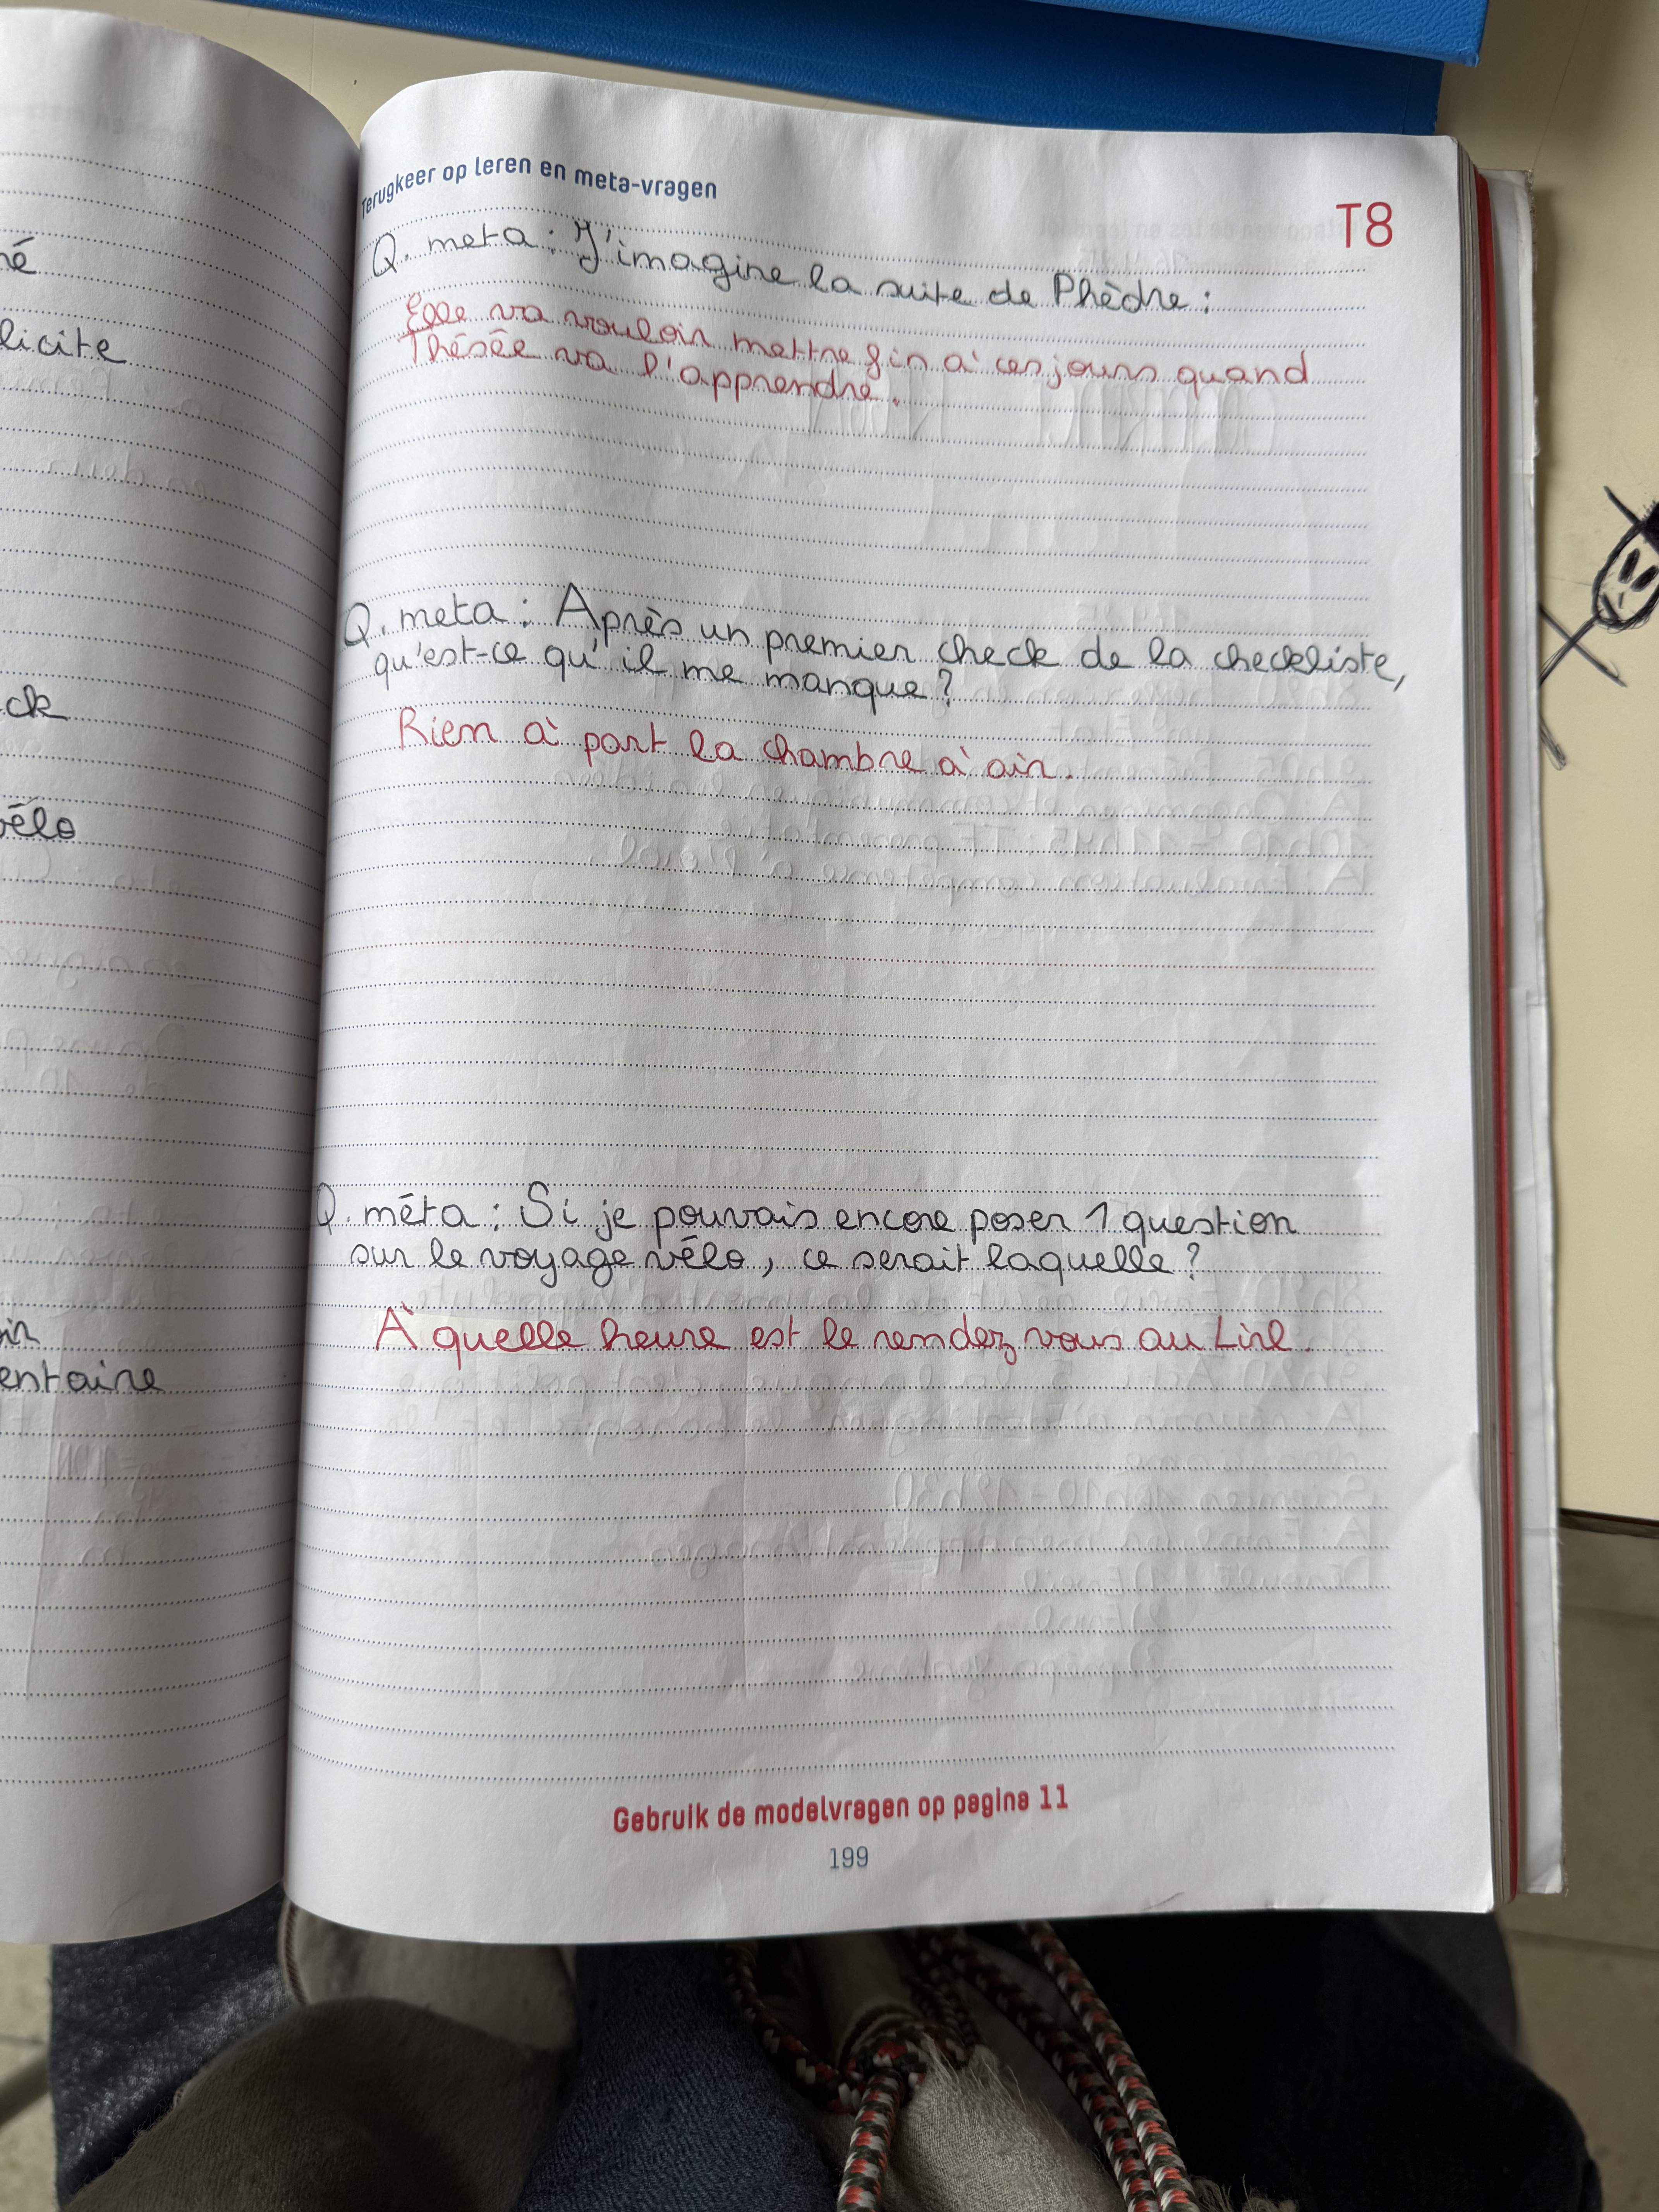 né
licite
ck
vélo
entaire
Terugkeer op leren en meta-vragen
T8
Q. meta : J'imagine la suite de Phèdre :
Elle va vouloir mettre fin à ces jours quand
Thésée va l'apprendre.
Q. meta : Après un premier check de la checkliste,
qu'est-ce qu'il me manque ?
Rien à part la chambre à air.
Q. méta : Si je pouvais encore poser 1 question
sur le voyage vélo, ce serait laquelle ?
À quelle heure est le rendez vous au Lirl.
Gebruik de modelvragen op pagina 11
199